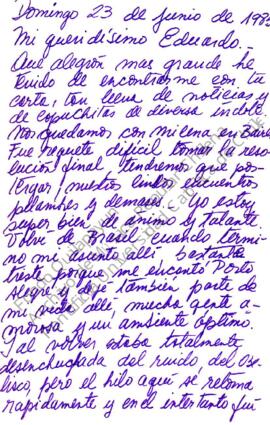 Domingo 23 de junio de 198
Mi queridísimo Eduardo.
Qué alegrón mas grande he
tuido de encontrarme con tu
carta, tan llena de noticias y
de copuchitas de diversa índole
Nos quedamos con milena en Baires
Fue requete dificil tomar la reso
lución final tendremos que pos-
tergar nuestro lindo encuentro
pelambres y demases. Yo estoy
super bien de ánimo y talante.
Volví de Brasil cuando termi-
nó mi asunto allí, bastante
triste porque me encantó Porto
Alegre y dejé también parte de
mi vida allí, mucha gente a-
morosa y un ambiente óptimo.
Y al volver estaba totalmente
desenchufada del ruido, del obe-
lisco, pero el hilo aquí se retoma
rapidamente y en el intertanto fuí